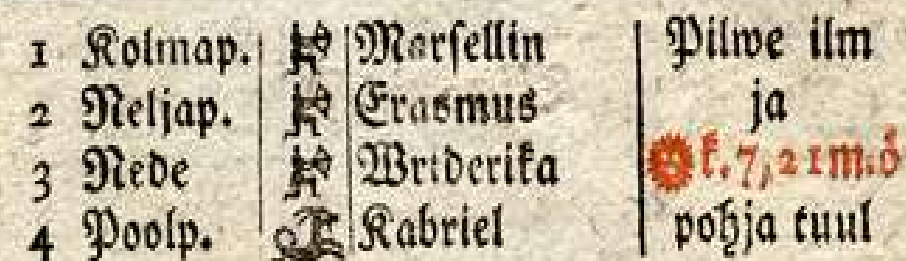 1 Kolmap. Marsellin Pilwe ilm
2 Neljap. Erasmus ja
3 Rede Wriderika k. 7, 21 m. ö
4 Poolp. Kabriel pohja tuul